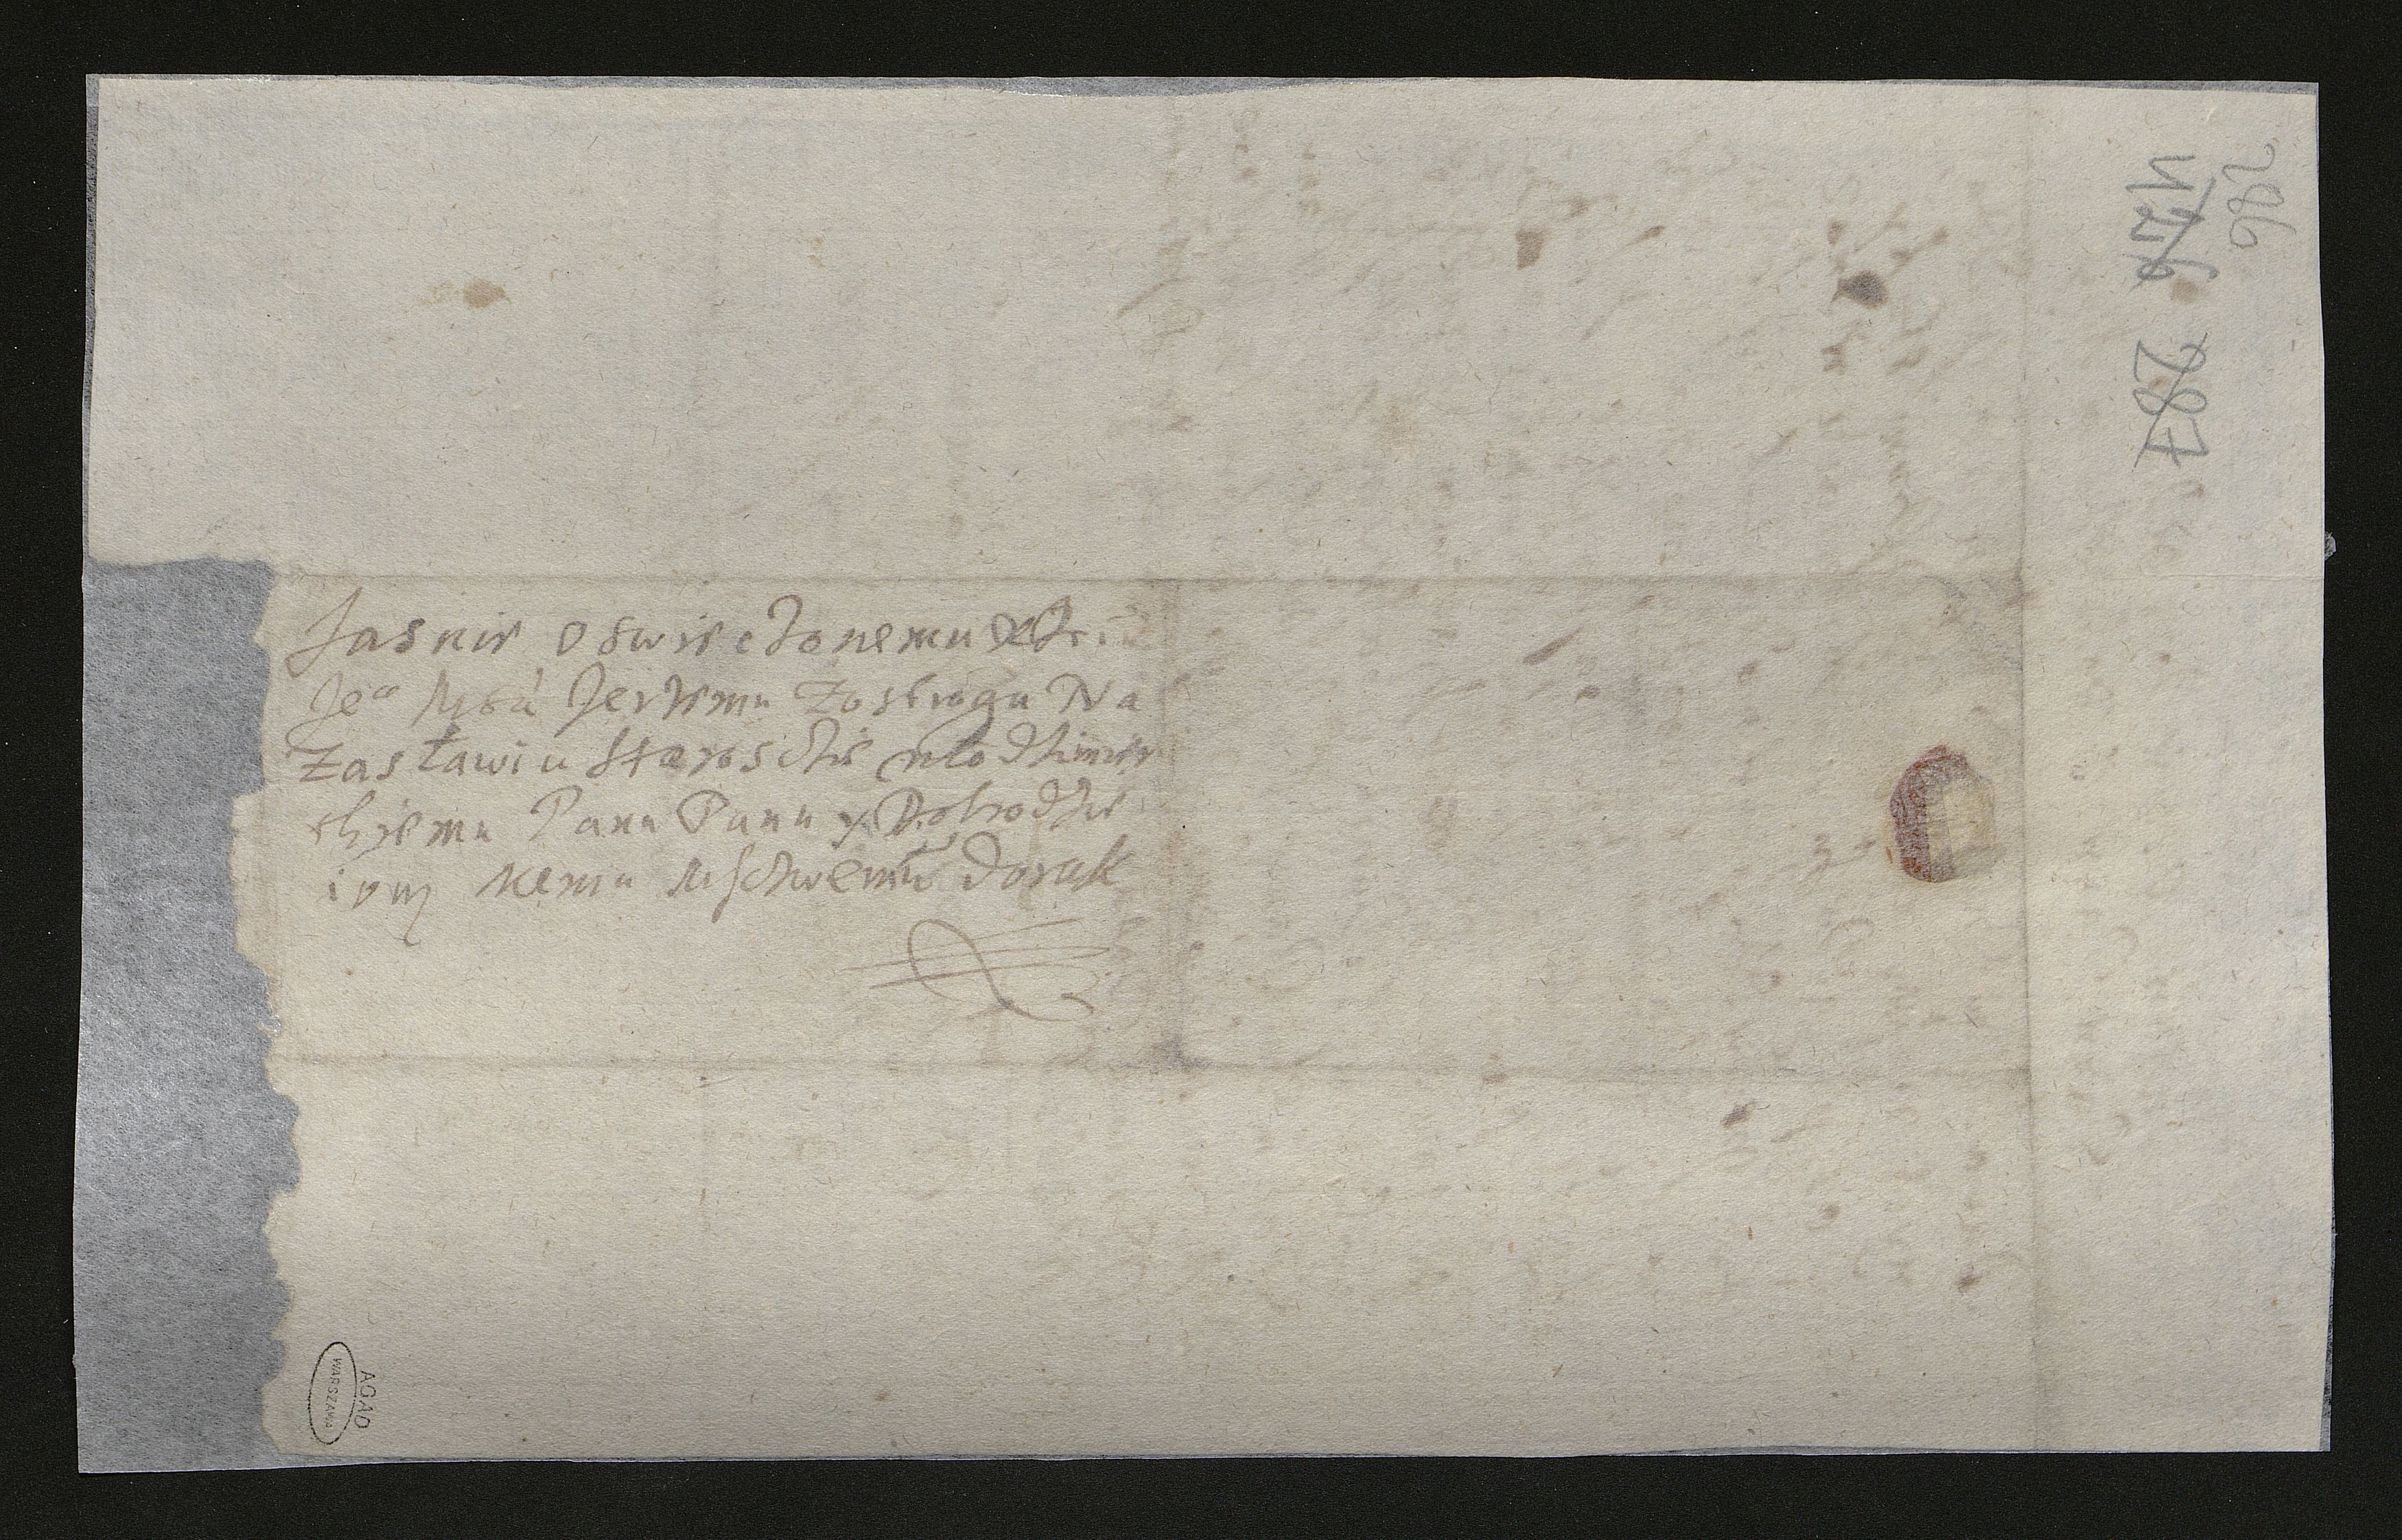 Jasnie Oswieczonemu Xdzi
Je° Msci Jerzemu Zostroga Na
Zasławiu Staroscie włodzimier
skiemu Panu Panu y Dobrodzie
iowi memu Msciwemu do rąk
286
287
AGAD
WARSZAWA